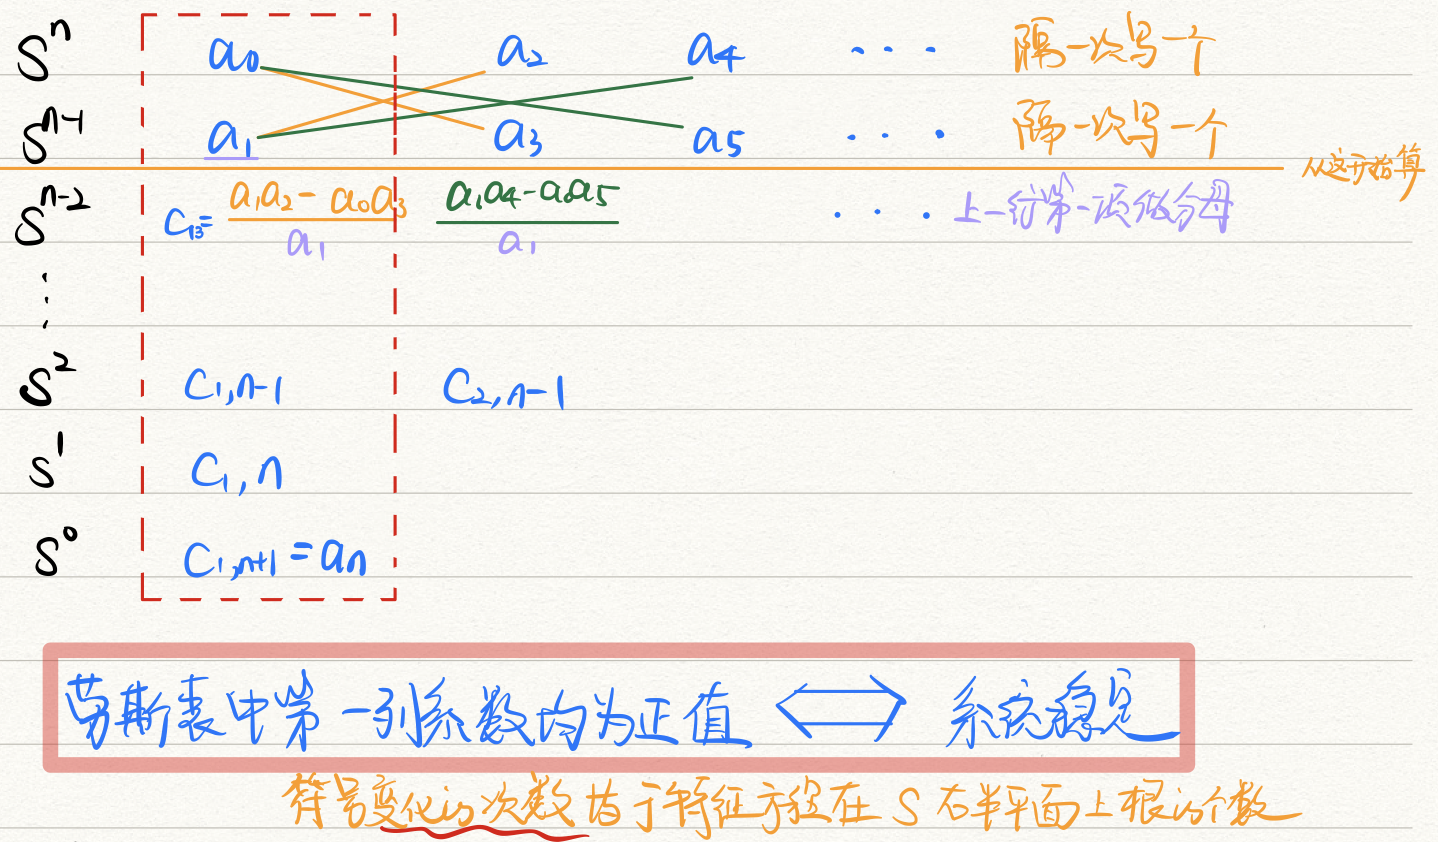 Sⁿ a₀ a₂ a₄ ··· 隔一次写一个
Sⁿ⁻¹ a₁ a₃ a₅ ··· 隔一次写一个
从这开始算
Sⁿ⁻² C₁₃= (a₁a₂-a₀a₃)/a₁ (a₁a₄-a₀a₅)/a₁ ··· 上一行第一项做分母
⋮
S² C₁,ₙ₋₁ C₂,ₙ₋₁
S¹ C₁,ₙ
S⁰ C₁,ₙ₊₁=aₙ
劳斯表中第一列系数均为正值 ⟺ 系统稳定
符号变化的次数等于特征方程在S右半平面上根的个数